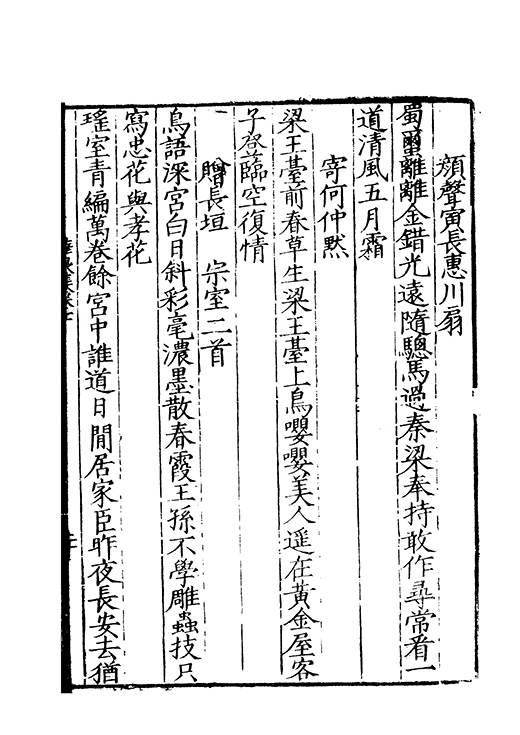 顏聲寅長惠川扇
蜀䌥離離金錯光遠隨驄馬過秦梁奉持敢作尋常看一
道清風五月霜
寄何仲黙
梁王臺前春草生梁王臺上鳥嚶嚶美人遥在黃金屋客
子登臨空復情
贈長垣　宗室二首
鳥語深宮白日斜彩毫濃墨散春霞王孫不學雕蟲技只
寫忠花與孝花
瑤室青編萬卷餘宮中誰道日閒居家臣昨夜長安去猶